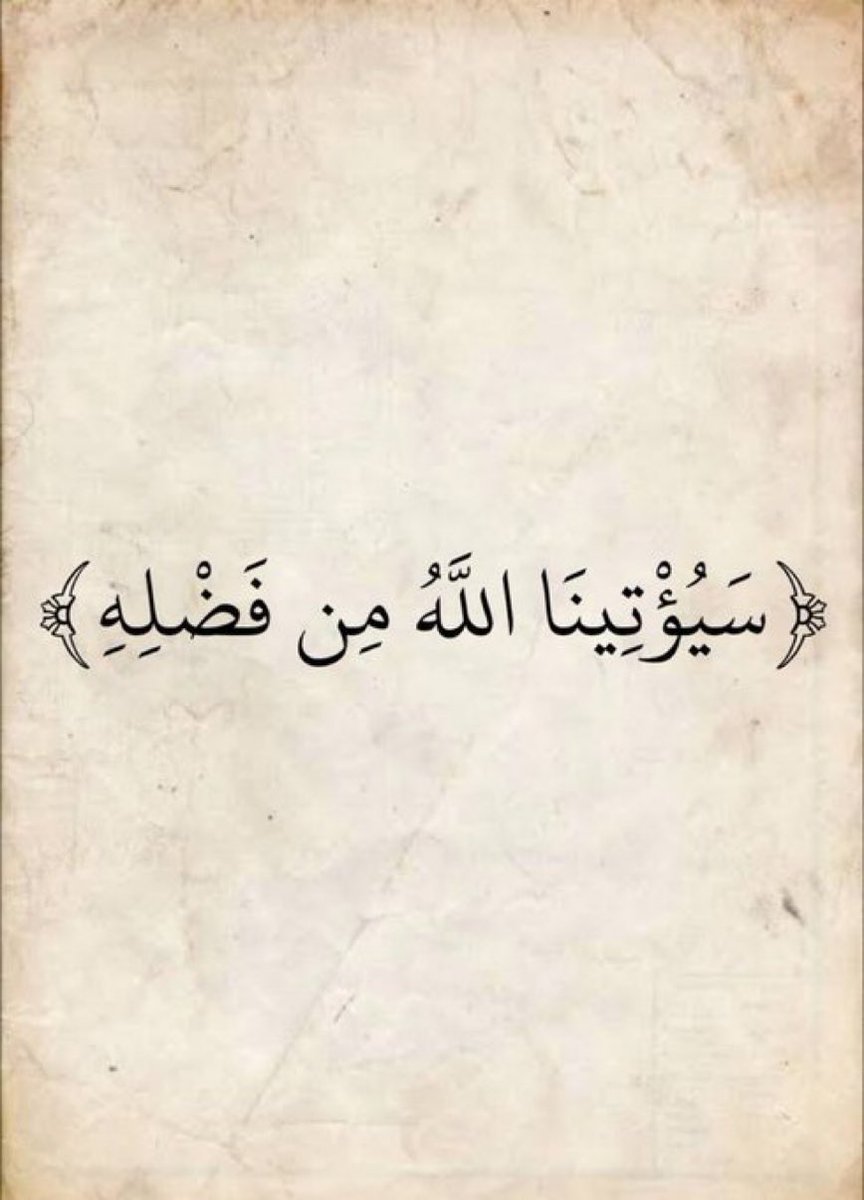 ﴿ سَيُؤْتِينَا اللَّهُ مِن فَضْلِهِ ﴾